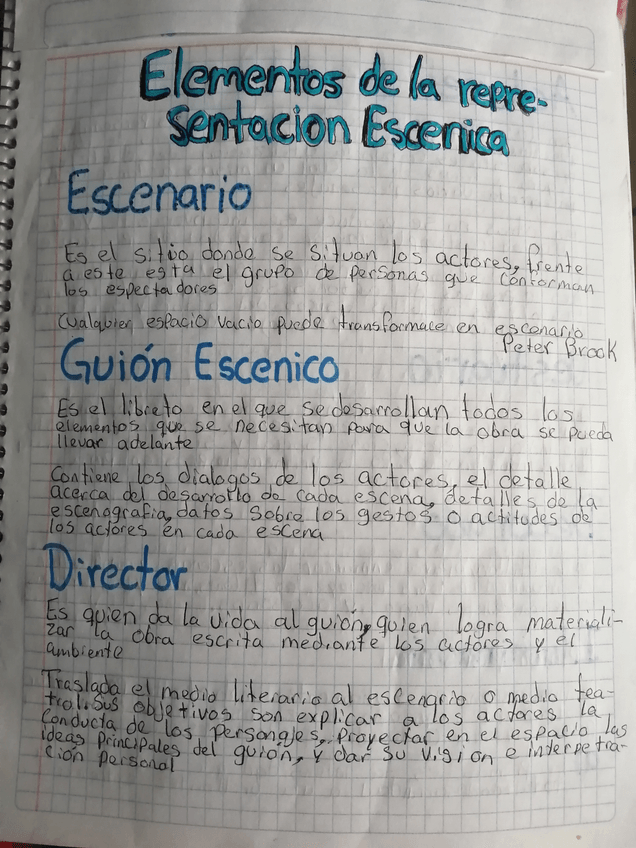 Elementos de la repre-
sentacion Escenica
Escenario
Es el sitio donde se situan los actores, frente
a este esta el grupo de personas que conforman
los espectadores
Cualquien espacio vacio puede transformace en escenario
Peter Brook
Guión Escenico
Es el libreto en el que se desarrollan todos los
elementos que se necesitan para que la obra se pueda
llevar adelante
Contiene los dialogos de los actores, el detalle
acerca del desarrollo de cada escena, detalles de la
escenografia, datos sobre los gestos o actitudes de
los actores en cada escena
Director
Es quien da la vida al guión, quien logra materiali-
zar la obra escrita mediante los actores y el
ambiente
Traslada el medio literario al escenario o medio tea-
tral. Sus objetivos son explicar a los actores la
conducta de los personajes, Proyectar en el espacio las
ideas principales del guión, y dar su vision e interpetra-
ción personal